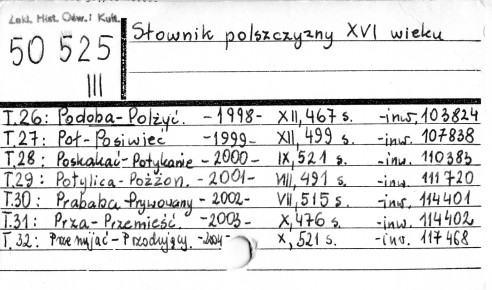 Zakł. Hist. Ośw. i Kult.
50 525
III
Słownik polszczyzny XVI wieku
T.26: Podoba-Polżyć. -1998- XII, 467 s. -inw. 103824
T.27: Poł-Posiwieć -1999- XII, 499 s. -inw. 107838
T.28: Poskakać-Potykanie -2000- IX, 521 s. -inw. 110383
T.29: Potylica-Pożżon. -2001- VIII, 491 s. -inw. 111720
T.30: Prababa-Prywowany -2002- VII, 515 s. -inw. 114401
T.31: Prza-Przemieść. -2003- X, 476 s. -inw. 114402
T.32: Przemijać-Przodujący -2004- X, 521 s. -inw. 117468